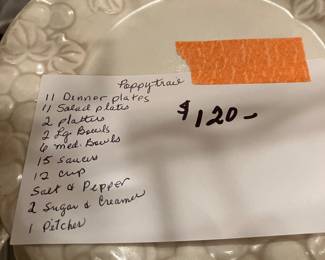 Poppytrail
11 Dinner plates
11 Salad plates
2 platters
2 Lg. Bowls
6 med. Bowls
15 saucers
12 cup
Salt & Pepper
2 Sugar & Creamer
1 Pitcher
$120-